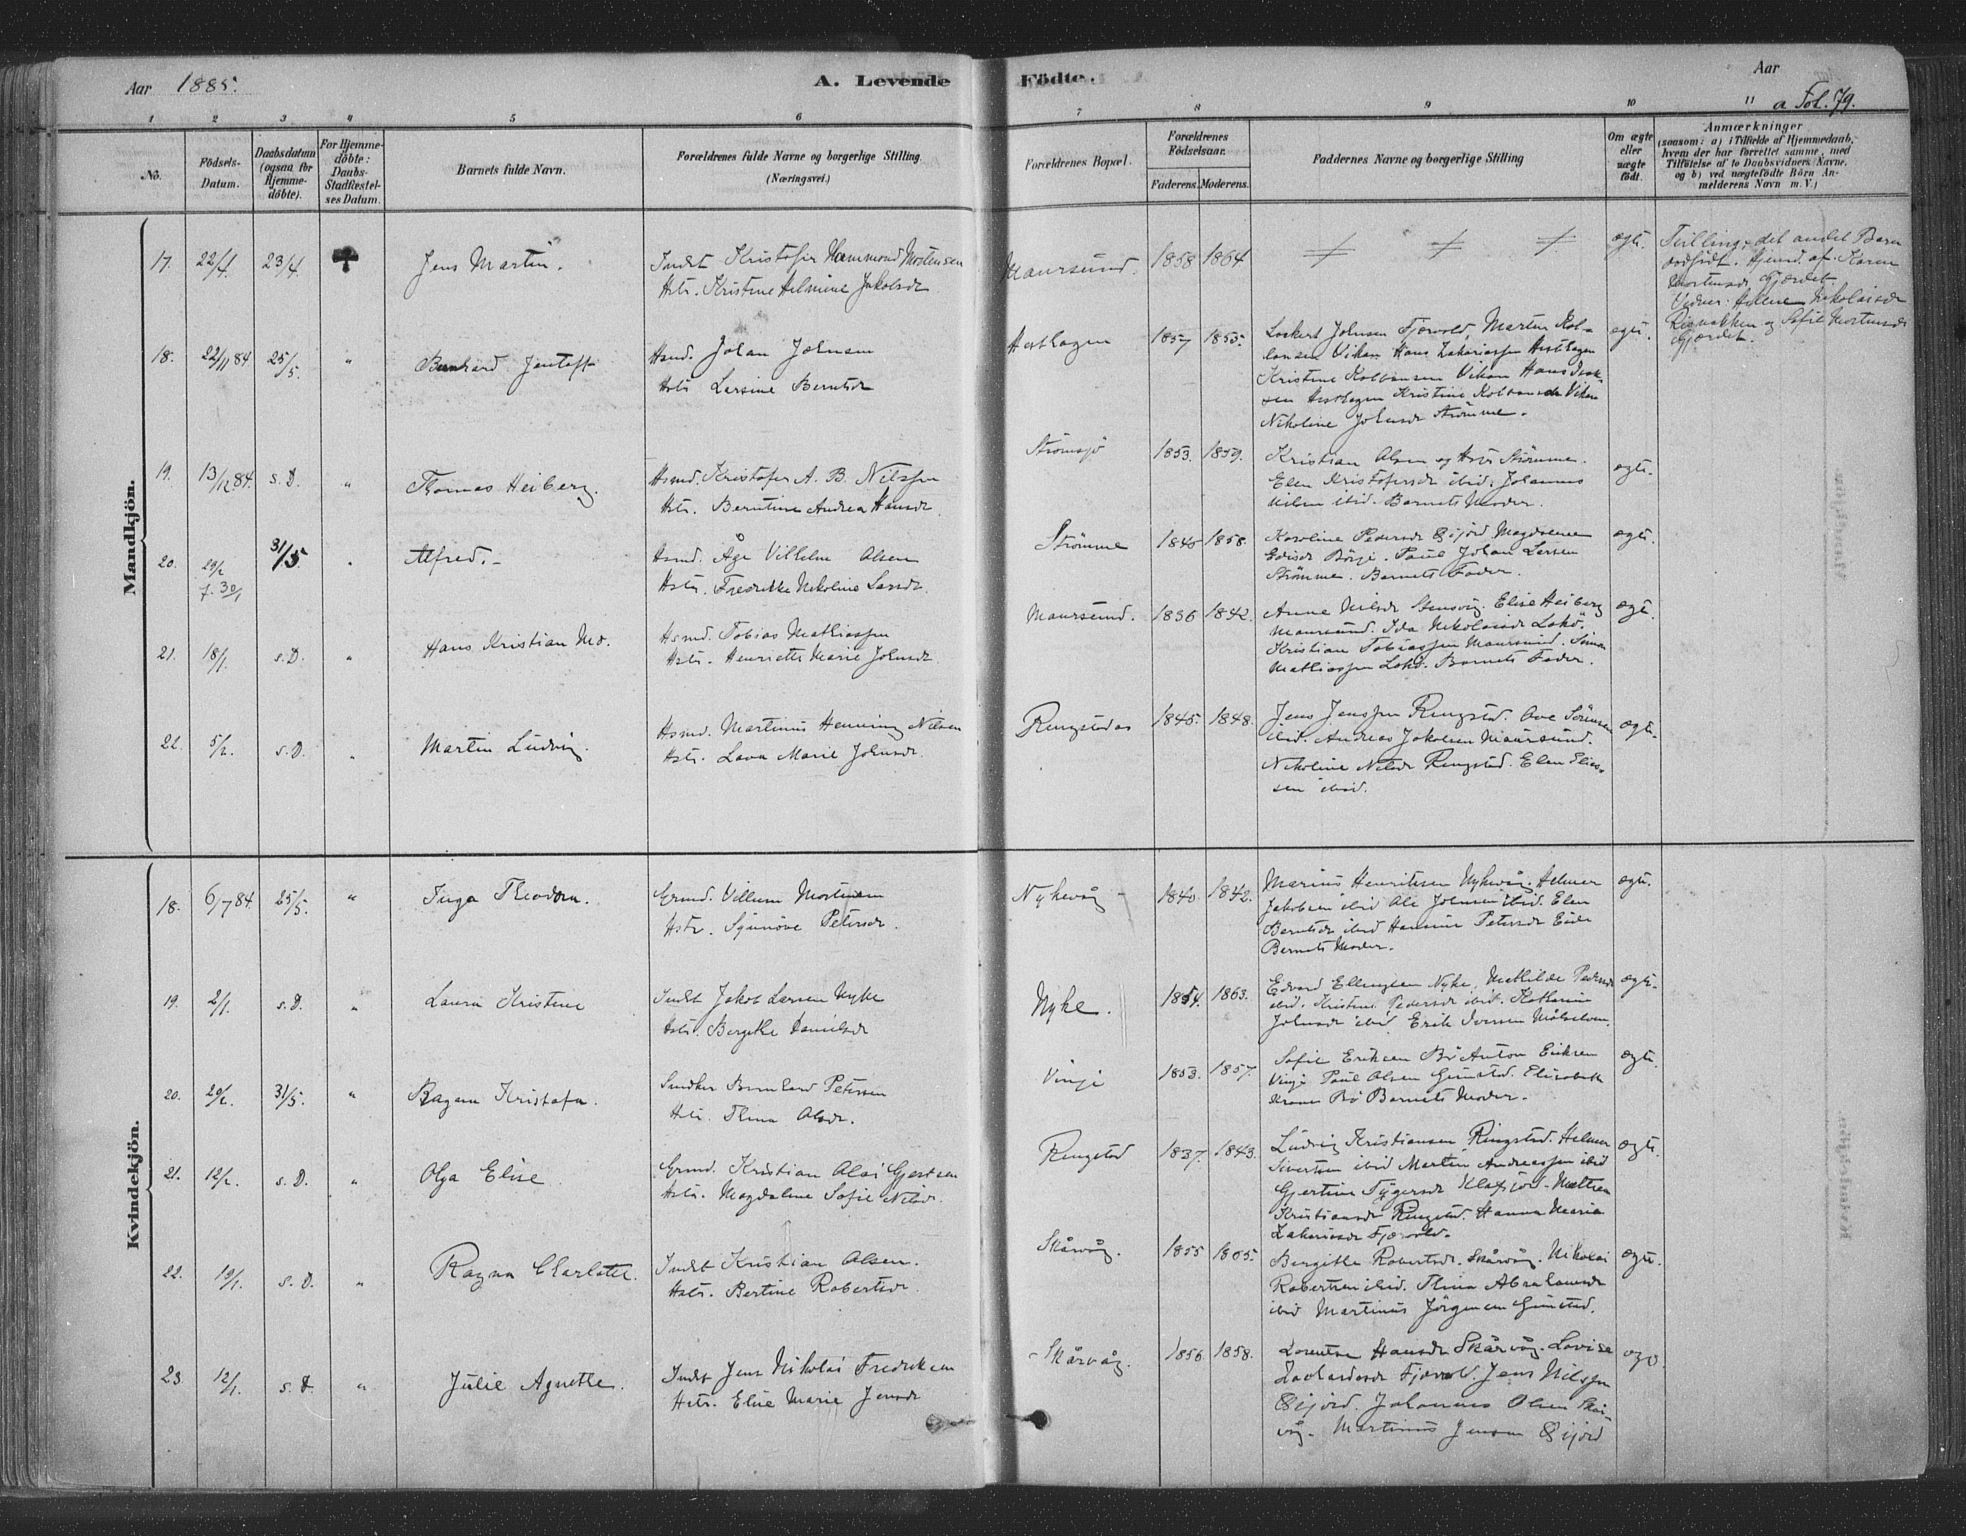 Aar 1885.
A. Levende Födte.
Aar
a Fol. 79.
1 2 3 4 5 6 7 8 9 10 11
No.
Födsels-Datum.
Daabsdatum (ogsaa for Hjemme-döbte).
For Hjemme-döbte: Daabs-Stadfæstel-ses Datum.
Barnets fulde Navn.
Forældrenes fulde Navne og borgerlige Stilling. (Næringsvei.)
Forældrenes Bopæl.
Forældrenes Födselsaar.
Faderens. Moderens.
Faddernes Navne og borgerlige Stilling
Om ægte eller uægte födt.
Anmærkninger
(saasom: a) i Tilfælde af Hjemmedaab,
hvem der har forrettet samme, med
Tilföielse af to Daabsvidners Navne,
og b) ved uægtefödte Börn An-
melderens Navn m. V.)
Mandkjön.
17. 22/4. 23/4 Jens Martin.
Indst Kristofer Hammond Mortensen
Hstr. Kristine Helmine Jakobsdr
Maursund. 1858 1864 ægte.
Tvilling, det andet Barn
dødfødt. Hjemd. af Karen
Mortensdr Gjærdet.
Vidner: Helene Nikolaisdr
og Sofie Mortensdr
Gjærdet.
18. 22/11 84 25/5. " Bernhard Jentoft
Hsmd. Johan Johnsen
Hstr. Lersine Berntsdr
Hesthagen 1857 1855.
Lockert Johnsen Fjærvold, Martin Kol-
bensen Vikan Hans Zakariassen Hesthagen
Kristine Kolbensen Vikan Hans Isak-
sen Hesthagen Kristine Kolbensdr Vikan
Nikoline Johnsdr Strömme.
ægte.
19. 13/12 84. s. D. " Thomas Heiberg.
Hsmd. Kristofer A. B. Nilssen
Hstr. Berntine Andrea Hansdr.
Strömsjö 1853. 1859.
Kristian Olsen og Hstr Strömme.
Elen Kristofersdr ibid. Johannes
Nilsen ibid. Barnets Moder.
ægte.
20. 29/1 f. 30/1 31/5 " Alfred.-
Hsmd. Åge Vilhelm Olsen
Hstr. Fredrikke Nikoline Larsdr.
Strömme 1845 1858.
Karoline Pedersdr Eijord Magdalene
Börje. Paul Johan Larsen
Strömme. Barnets Fader.
ægte.
21. 18/1. s. D. " Hans Kristian Mo.
Hsmd. Tobias Mathiassen
Hstr. Henriette Marie Johnsdr
Maursund. 1836 1842.
Anne Nilsdr Stensvig. Elise Heiberg
Maursund. Ida Nikolaisdr
Kristian Tobiassen Maursund.
Mathiassen Barnets Fader.
ægte.
22. 5/2. s. D. " Martin Ludvig
Hsmd. Martinus Henning Nilsen
Hstr. Lava Marie Johnsdr
Ringstadas 1845. 1848.
Jens Jenssen Ringstad. Ove Sörensen
ibid. Andreas Jakobsen Maursund.
Nikoline Nilsdr Ringstad. Elen Elias-
sen ibid.
ægte.
Kvindekjön.
18. 6/7 84. 25/5. " Inga Theodora.
Grmd. Villum Mortensen
Hstr. Synnöve Petersdr.
Nykevåg 1840. 1842.
Marius Henriksen Nykevåg. Helmer
Jakobsen ibid Ole Johnsen ibid. Elen
Berntsdr ibid Hansine Petersdr
Barnets Moder.
ægte.
19. 2/1. s. D. " Laura Kristine
Indst Jakob Larsen Nyke
Hstr. Bergithe Danielsdr
Nyke. 1854. 1863.
Edvard Ellingsen Nyke, Mathilde Pedersdr
ibid. Kristine Pedersdr ibid. Katharina
Johnsdr ibid Erik Iversen Målselven.
ægte.
20. 29/1. 31/5. " Ragna Kristofa.
Snedker Bernhard Petersen
Hstr. Thina Olsdr.
Vinje 1853. 1857.
Sofie Eriksen Bö Anton Eriksen
Vinje Paul Olsen Gimstad. Elisabeth
Bö Barnets Moder.
ægte
21. 12/2. s. D. " Olga Elise.
Grmd. Kristian Olai Gjertsen
Hstr. Magdaline Sofie Nilsdr.
Ringstad 1837. 1843.
Ludvig Kristiansen Ringstad. Helmer
Sivertsen ibid Martin Andreassen ibid
Gjertine Klafjord. Mathea
Kristiansdr Ringstad. Hanna Maria
Zakariasdr Fjærvold.
ægte.
22. 19/1. s. D. " Ragna Charlotte.
Indst Kristian Olsen.
Hstr. Bertine Robertsdr.
Skårvåg. 1855 1865.
Bergithe Robertsdr. Skårvåg. Nikolai
Robertsen ibid. Thina Abrahamsdr
ibid Martinus Jörgensen Gimstad.
ægte.
23. 12/1. s. D. " Julie Agnethe.
Indst Jens Nikolai Fredriksen
Hstr. Elise Marie Jensdr
Skårvåg. 1856. 1858.
Lorentse Hansdr Skårvåg. Lovise
Fjærvold. Jens Nilssen
Eijord. Johannes Olsen Skår-
våg. Martinus Jensen Eijord